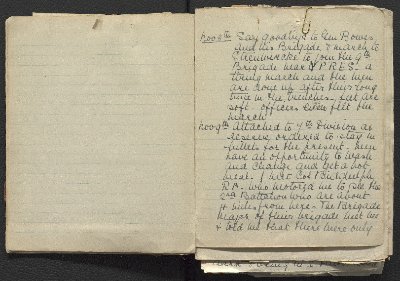 Nov 8th Say goodbye to Gen Bowes
and his Brigade & march to
to join the 9th
Brigade near YPRES - a
tiring march and the men
are done up after their long
time in the trenches, feet are
soft. Officers even felt the
march
Nov 9th Attached to 4th Division as
reserve, ordered to stay in
billets for the present. Men
have an opportunity to wash
and change and get a hot
meal. I met Col
R.A. who motored me to see the
2nd Battalion who are about
4 miles from here - The Brigade
Major of their brigade met me
& told me that there were only